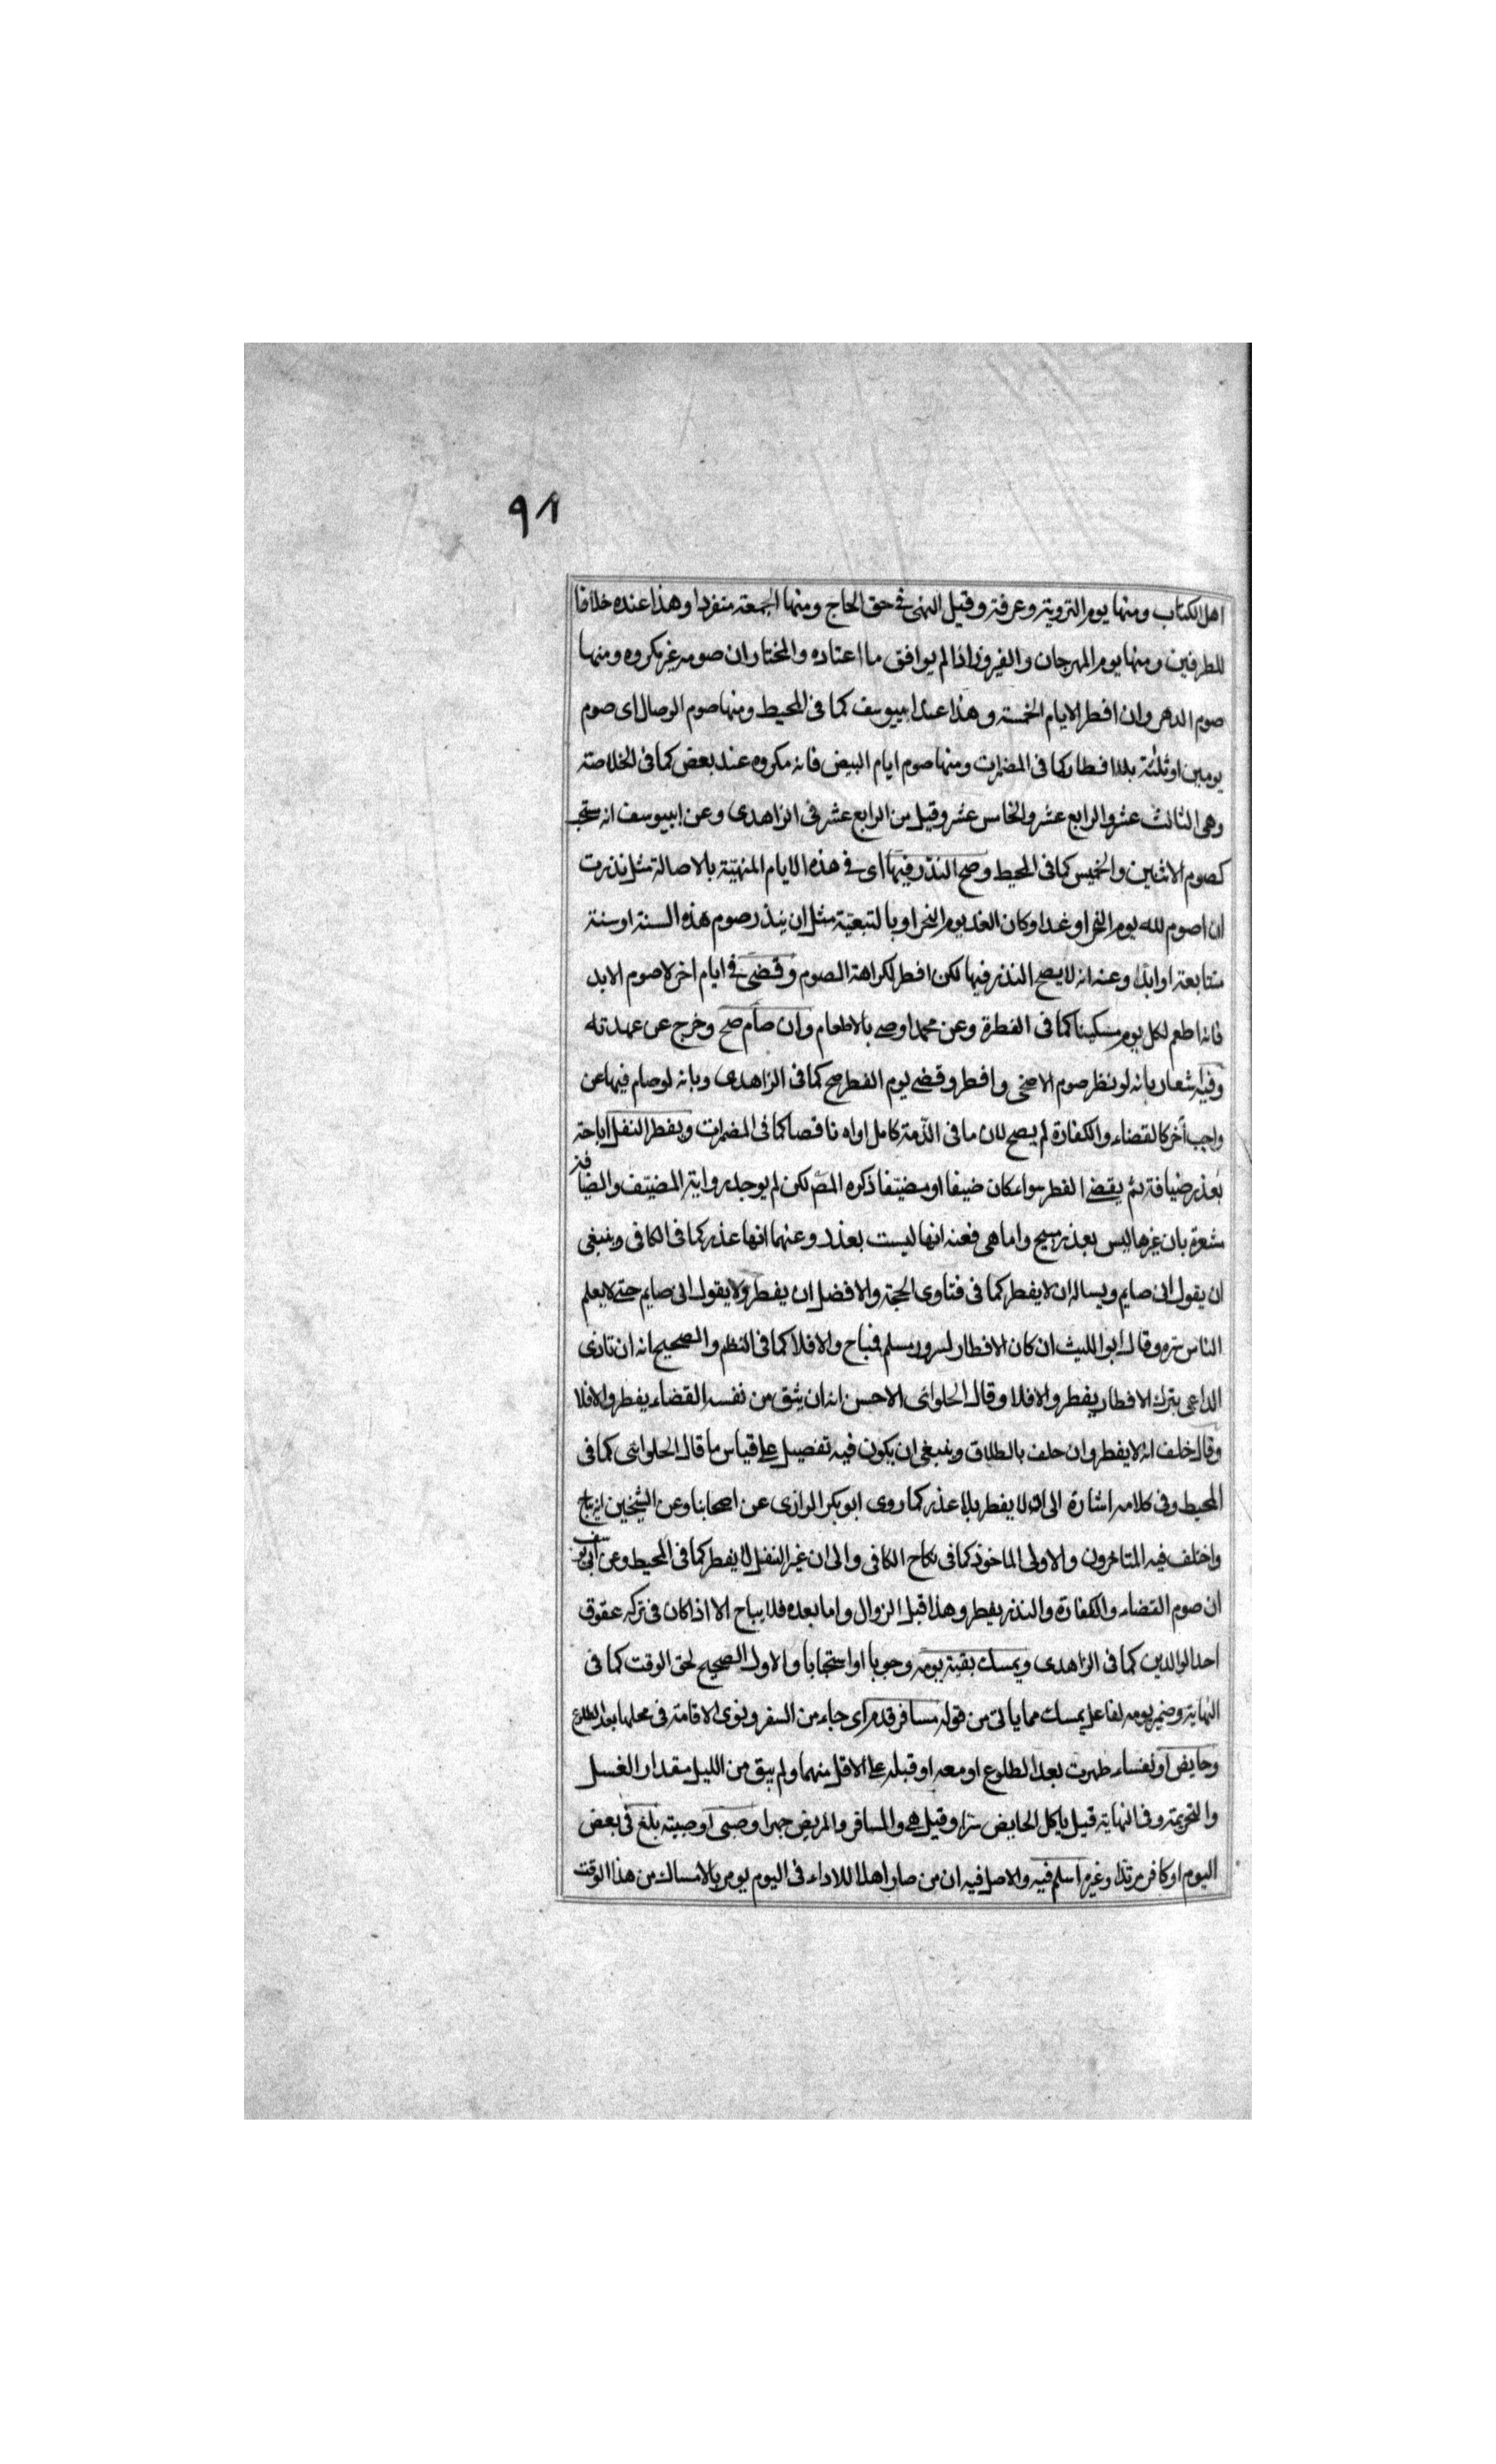 ٩٨
اهل الكتاب ومنها يوم التروية وعرفة وقيل النهى فى حق الحاج ومنها الجمعة منفردا وهذا عنده خلافا
للطرفين ومنها يوم المهرجان والفيروز اذا لم يوافق ما اعتاده والمختار ان صومه غير مكروه ومنها
صوم الدهر وان افطر الايام الخمسة وهذا عند ابيوسف كما فى المحيط ومنها صوم الوصال اى صوم
يومين او ثلثة بلا افطار كما فى المضمرات ومنها صوم ايام البيض فانه مكروه عند بعض كما فى الخلاصة
وهى الثالث عشر والرابع عشر والخامس عشر وقيل من الرابع عشر فى الزاهدى وعن ابيوسف انه يستحب
كصوم الاثنين والخميس كما فى المحيط وصح النذر فيها اى فى هذه الايام المنهيّة بالاصالة مثل نذرت
ان اصوم لله يوم النحر او غدا وكان الغد يوم النحر او بالتبعيّة مثل ان ينذر صوم هذه السنة او سنة
متتابعة او ابدا وعنه انه لا يصح النذر فيها لكن افطر لكراهة الصوم وقضى فى ايام اخر لا صوم الابد
فانه اطعم لكل يوم مسكينا كما فى الفطرة وعن محمد اوصى بالاطعام وان صام صح وخرج عن عهدته
وفيه اشعار بانه لو نظر صوم الاضحى وافطر وقضى يوم الفطر صح كما فى الزاهدى وبانه لو صام فيها عن
واجب أخر كالقضاء والكفارة لم يصح لان ما فى الذّمة كامل اداه ناقصا كما فى المضمرات ويفطر النفل اباحة
بعذر ضيافة ثم يقضى الفطر سواء كان ضيفا او مضيّفا ذكره المصّ لكن لم يوجد رواية المضيّف والضيافة
مشعرة بان غيرها ليس بعذر مبيح واما هى فعنه انها ليست بعذر وعنهما انها عذر كما فى الكافى وينبغى
ان يقول انى صايم ويساله ان لا يفطر كما فى فتاوى الحجة والافضل ان يفطر ولا يقول انى صايم حتى لا يعلم
الناس سره وقال ابو الليث ان كان الافطار لسرور مسلم فمباح والا فلا كما فى النظم والصحيح انه ان تاذى
الداعى بترك الافطار يفطر والا فلا وقال الحلوانى الاحسن انه ان يثق من نفسه القضاء يفطر والا فلا
وقال خلف انه لا يفطر وان حلف بالطلاق وينبغى ان يكون فيه تفصيل على قياس ما قال الحلوانى كما فى
المحيط وفى كلامه اشارة الى انه لا يفطر بلا عذر كما روى ابو بكر الرازى عن اصحابنا وعن الشيخين انه يباح
واختلف فيه المتاخرون والاولى الماخوذ كما فى نكاح الكافى والى ان غير النفل لا يفطر كما فى المحيط وعن ابى يوسف
ان صوم القضاء والكفارة والنذر يفطر وهذا قبل الزوال واما بعده فلا يباح الا اذا كان فى تركه عقوق
احد الوالدين كما فى الزاهدى ويمسك بقية يومه وجوبا او استحبابا والاول الصحيح لحق الوقت كما فى
النهاية وضمير يومه لفاعل يمسك مما ياتى من قوله مسافر قدم اى جاء من السفر ونوى الاقامة فى محلها بعد الطلوع
وحايض او نفساء طهرت بعد الطلوع او معه او قبله على الاقل منهما ولم يبق من الليل مقدار الغسل
والتحريمة وفى النهاية قيل ياكل الحايض سرّا وقيل هى والمسافر والمريض جهرا وصبى او صبية بلغ فى بعض
اليوم او كافر مرتدا وغيره اسلم فيه والاصل فيه ان من صار اهلا للاداء فى اليوم يومر بالامساك من هذا الوقت